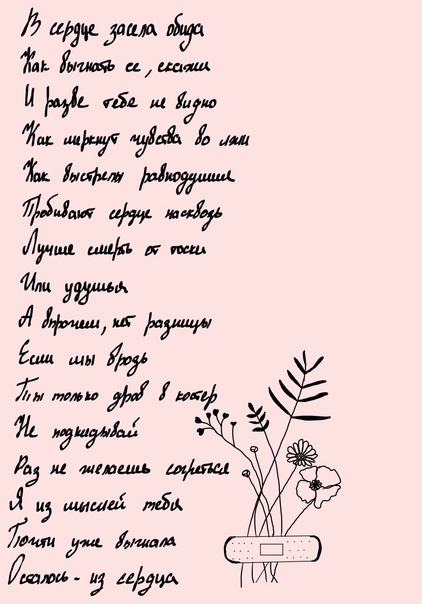 В сердце засела обида
Как выгнать ее, скажи
И разве тебе не видно
Как меркнут чувства во лжи
Как выстрелы равнодушия
Пробивают сердце насквозь
Лучше смерть от тоски
Или удушья
А впрочем, нет разницы
Если мы врозь
Ты только дров в костер
Не подкидывай
Раз не желаешь согреться
Я из мыслей тебя
Почти уже выгнала
Осталось - из сердца